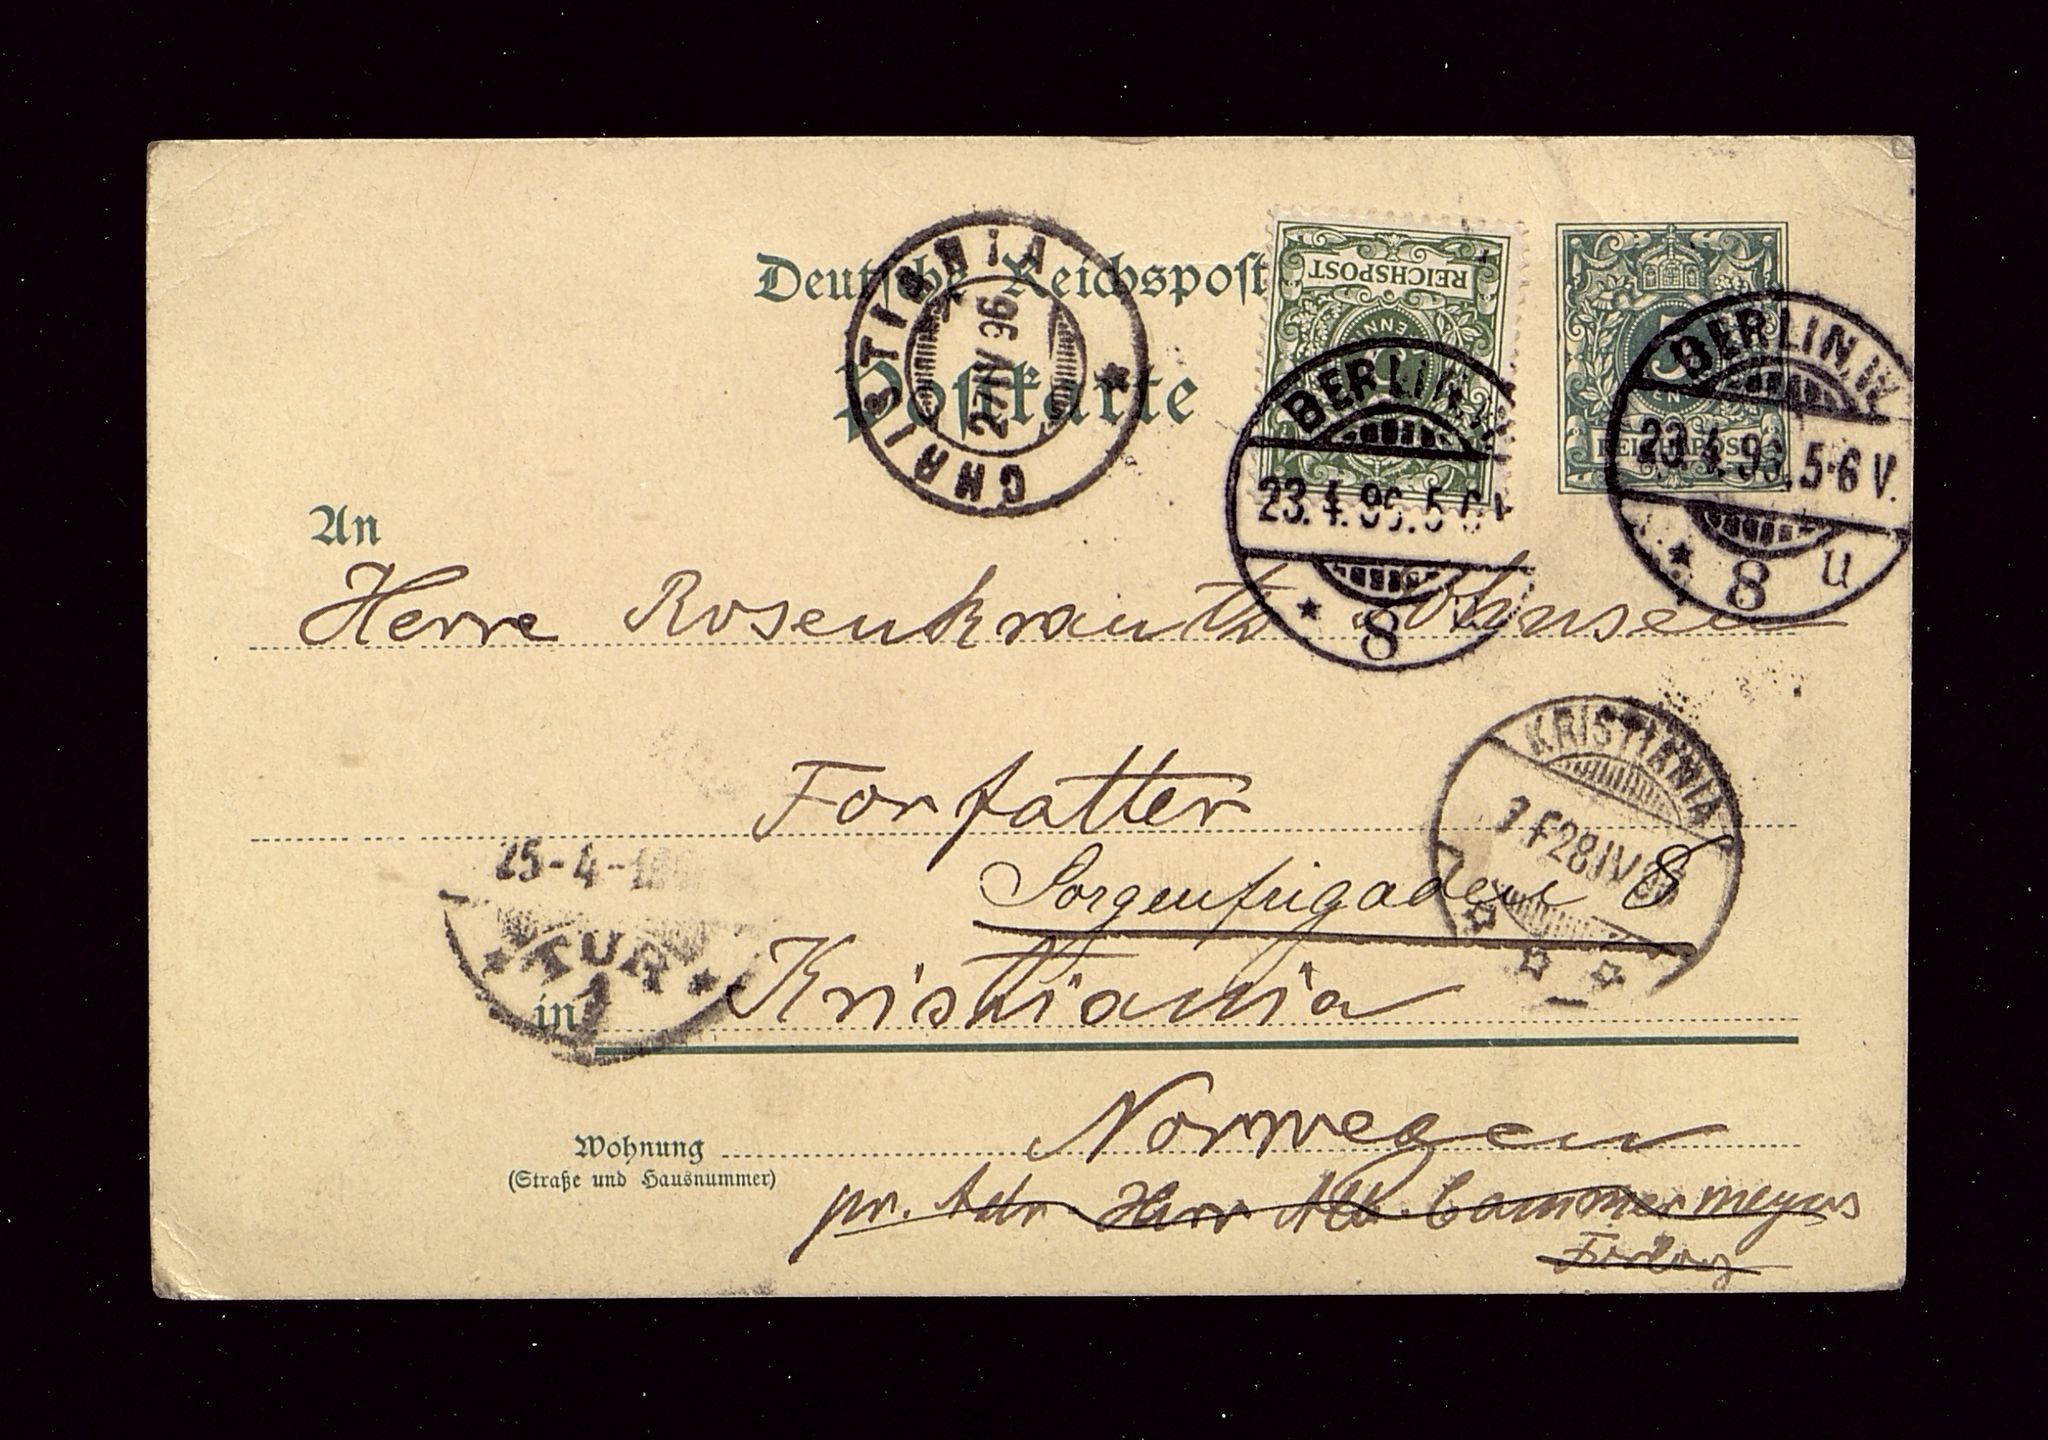 Deutsche Reichspost
Postkarte
CHRISTIANIA
27 IV 96
REICHSPOST
BERLIN.W.
23.4.96.5-6V.
8
REICHSPOST
BERLIN.W.
23.4.96.5-6V.
8 u
An
Herre Rosenkrantz Johnsen
Forfatter
KRISTIANIA
28 IV
Sorgenfrigaden 8
25-4-
TUR
1
in Kristiania
Norwegen
Wohnung
(Straße und Hausnummer)
pr. Adr. Herr Alb. Cammermeyers
Forlag